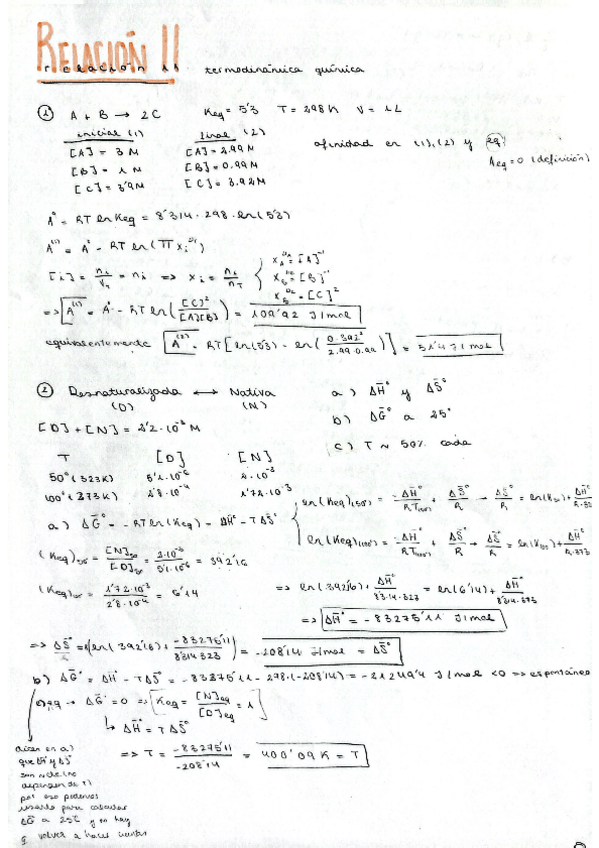 RELACIÓN 11
relación 11 termodinámica química
① A + B → 2C Keq = 5'3 T = 298K V = 1L
inicial (1) final (2) afinidad en (1), (2) y eq
[A] = 3 M [A] = 2.99 M Aeq = 0 (definición)
[B] = 1 M [B] = 0.99 M
[C] = 3'9M [C] = 3.92 M
A° = RT ln Keq = 8'314 · 298 · ln(5'3)
A⁽¹⁾ = A° - RT ln(π xi^νi)
[i] = ni/V = ni => xi = ni/nT { xA^νA = [A]⁻¹
xB^νB = [B]⁻¹
xC^νC = [C]²
=> A⁽¹⁾ = A° - RT ln([C]²/[A][B]) = 109'92 J/mol
equivalentemente A⁽²⁾ = RT [ln(5'3) - ln(0.392²/2.99·0.99)] = 31'4 J/mol
② Desnaturalizada ↔ Nativa a) ΔH̄° y ΔS̄°
(D) (N) b) ΔḠ° a 25°
[D] + [N] = 2'2·10⁻³ M c) T ~ 50% cada
T [D] [N]
50° (323K) 5'1·10⁻⁶ 2·10⁻³
100° (373K) 2'8·10⁻⁴ 1'72·10⁻³
a) ΔḠ° = -RT ln(Keq) = ΔH̄° - TΔS̄°
ln(Keq)(50°) = -ΔH̄°/RT(50°) + ΔS̄°/R → ΔS̄°/R = ln(K50) + ΔH̄°/R·323
ln(Keq)(100°) = -ΔH̄°/RT(100°) + ΔS̄°/R → ΔS̄°/R = ln(K100) + ΔH̄°/R·373
(Keq)50° = [N]50/[D]50 = 2·10⁻³/5'1·10⁻⁶ = 392'16
(Keq)100° = 1'72·10⁻³/2'8·10⁻⁴ = 6'14
=> ln(392'16) + ΔH̄°/8'314·323 = ln(6'14) + ΔH̄°/8'314·373
=> ΔH̄° = -83275'11 J/mol
=> ΔS̄° = (ln(392'16) + -83275'11/8'314·323) = -208'14 J/mol = ΔS̄°
b) ΔḠ° = ΔH̄° - TΔS̄° = -83275'11 - 298·(-208'14) = -21249'4 J/mol <0 => espontáneo
→ ΔḠ° = 0 => Keq = [N]eq/[D]eq = 1
↳ ΔH̄° = TΔS̄°
=> T = -83275'11/-208'14 = 400'09 K = T
dicen en a)
que ΔH̄° y ΔS̄°
son ctes (no
dependen de T)
por eso podemos
usarlo para calcular
ΔḠ a 25°C y no hay
q volver a hacer cuentas